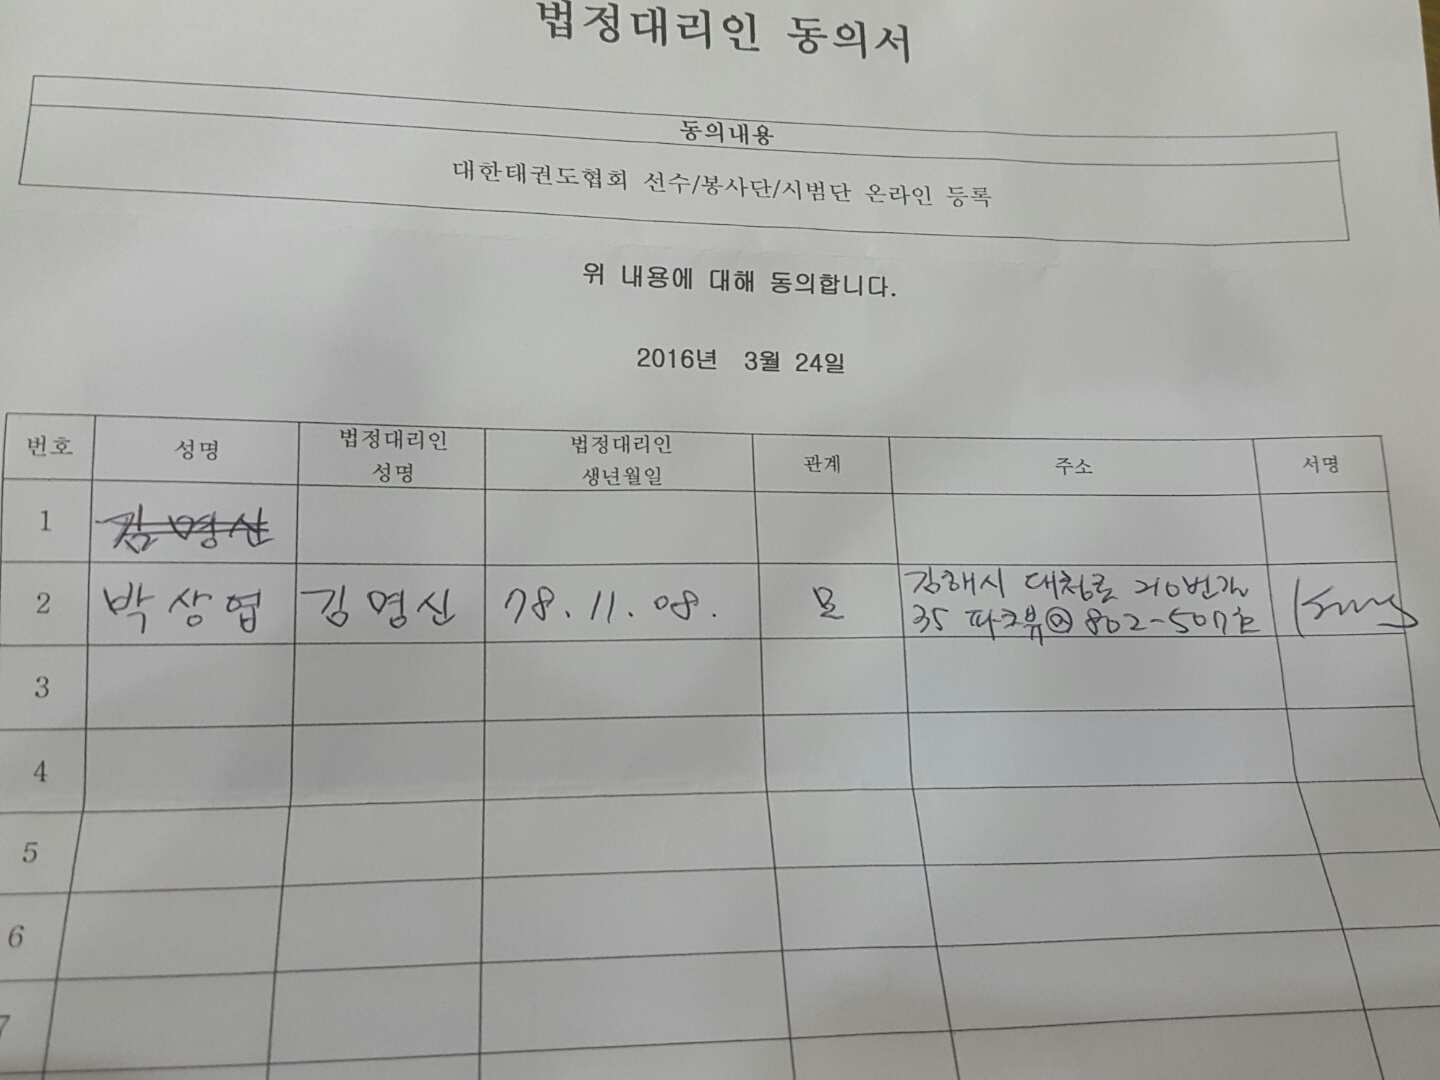 법정대리인 동의서
동의내용
대한태권도협회 선수/봉사단/시범단 온라인 등록
위 내용에 대해 동의합니다.
2016년 3월 24일
번호 성명 법정대리인 성명 법정대리인 생년월일 관계 주소 서명
1 김영신
2 박상협 김영신 78.11.08. 모 김해시 대청로 210번길
35 파크뷰@ 802-507호
3
4
5
6
7